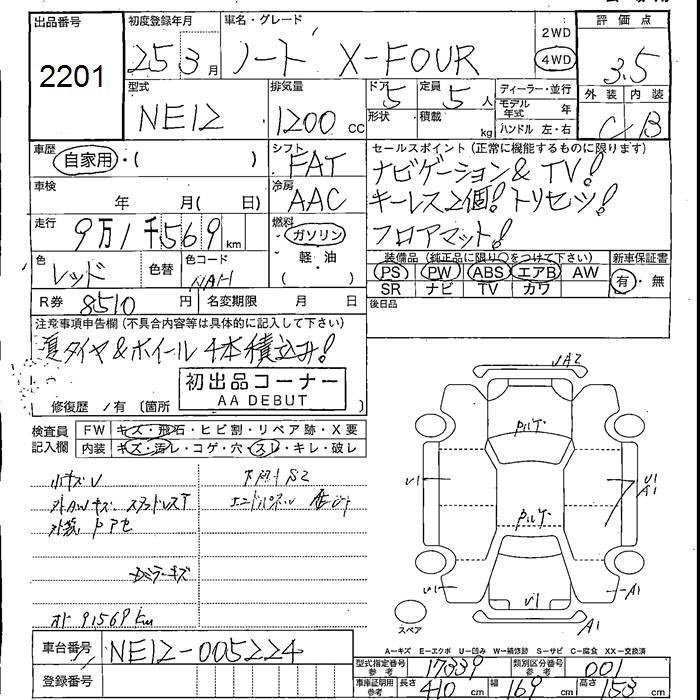 出品番号 初度登録年月 車名・グレード 評価点
2201 25 3月 ノート X-FOUR 2WD 4WD 3.5
型式 排気量 ドア 5 定員 5人 ディーラー・並行 外装 内装
NE12 1200cc 形状 積載 kg モデル年式 年 C B
ハンドル 左・右
車歴 自家用・( ) シフト FAT セールスポイント(正常に機能するものに限ります)
ナビゲーション& TV!
車検 年 月( 日) 冷房 AAC キーレス2個!トリセツ!
走行 9万1千569km 燃料 ガソリン フロアマット!
軽・油
( )
色 レッド 色替 色コード NAH 装備品(純正品に限り○をつけて下さい) 新車保証書
PS PW ABS エアB AW 有・無
SR ナビ TV カワ
R券 8510円 名変期限 月 日 後日品
注意事項申告欄(不具合内容等は具体的に記入して下さい)
夏タイヤ&ホイール 4本積込み!
初出品コーナー
AA DEBUT
修復歴/有(箇所 )
検査員記入欄 FW キズ・飛石・ヒビ割・リペア跡・X要
内装 キズ・汚レ・コゲ・穴・スレ・キレ・破レ
小キズU
外AWキズ スタッドレスT
エンドパネル
ドアミラーキズ
91569km
U1
A1
U1
A1
U1
A1
スペア
A-キズ E-エクボ U-凹み W-補修跡 S-サビ C-腐食 XX-交換済
車台番号 NE12-005224 型式指定番号 参考 17039 類別区分番号 参考 001
登録番号 車庫証明用 参考 長さ 410cm 幅 169cm 高さ 153cm